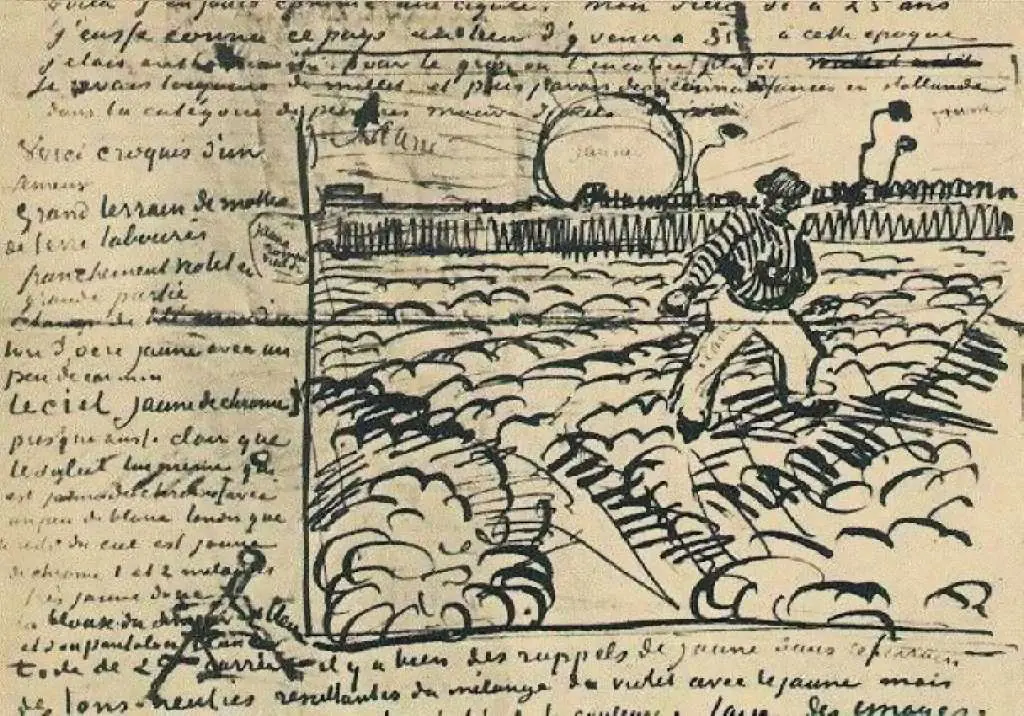 Voilà j'en jouis comme une cigale. Mon dieu si à 25 ans
j'eusse connu ce pays au lieu d'y venir à 35 à cette époque
j'étais enthousiasmé pour le gris ou l'incolore plutôt
Je rêvais toujours de Millet et puis j'avais des connaissances en Hollande
dans la catégorie de peintres Mauve Israels
jaune
jaune
Voici croquis d'un
semeur
Grand terrain de mottes
de terre labourées
franchement violet en
grande partie
Champ de blé mûr d'un
ton d'ocre jaune avec un
peu de carmin
Le ciel jaune de chrome
presque aussi clair que
le soleil lui même qui
est jaune de chrome 1 avec
un peu de blanc tandis que
le reste du ciel est jaune
de chrome 1 et 2 mélangés
très jaune donc
la blouse du semeur
et son pantalon blanc
toile de 25 carrée il y a bien des rappels de jaune dans le terrain
des tons neutres résultants du mélange du violet avec le jaune mais